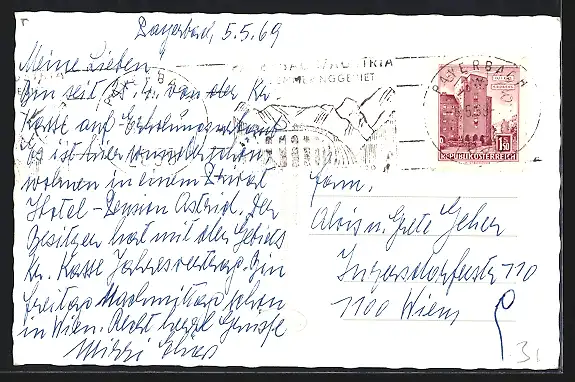 Payerbach, 5.5.69
Meine Lieben
Bin seit 15.4. von der Kr.
Kasse auf Erholungsurlaub
Es ist hier wunderschön,
wohnen in einem Privat
Hotel-Pension Astrid. Der
Besitzer hat mit der Gebiets
Kr. Kasse Jahresvertrag. Bin
Freitag Nachmittag schon
in Wien. Recht herzl. Grüsse
Mitzi
AUSTRIA
SEMMERINGGEBIET
PAYERBACH
1.50
REPUBLIK ÖSTERREICH
Fam.
Alois u. Grete Geher
Inzersdorferstr 110
1100 Wien
31